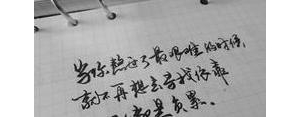 当你熬过了最艰难的时候,
就不再想去寻找依靠
都是负累.